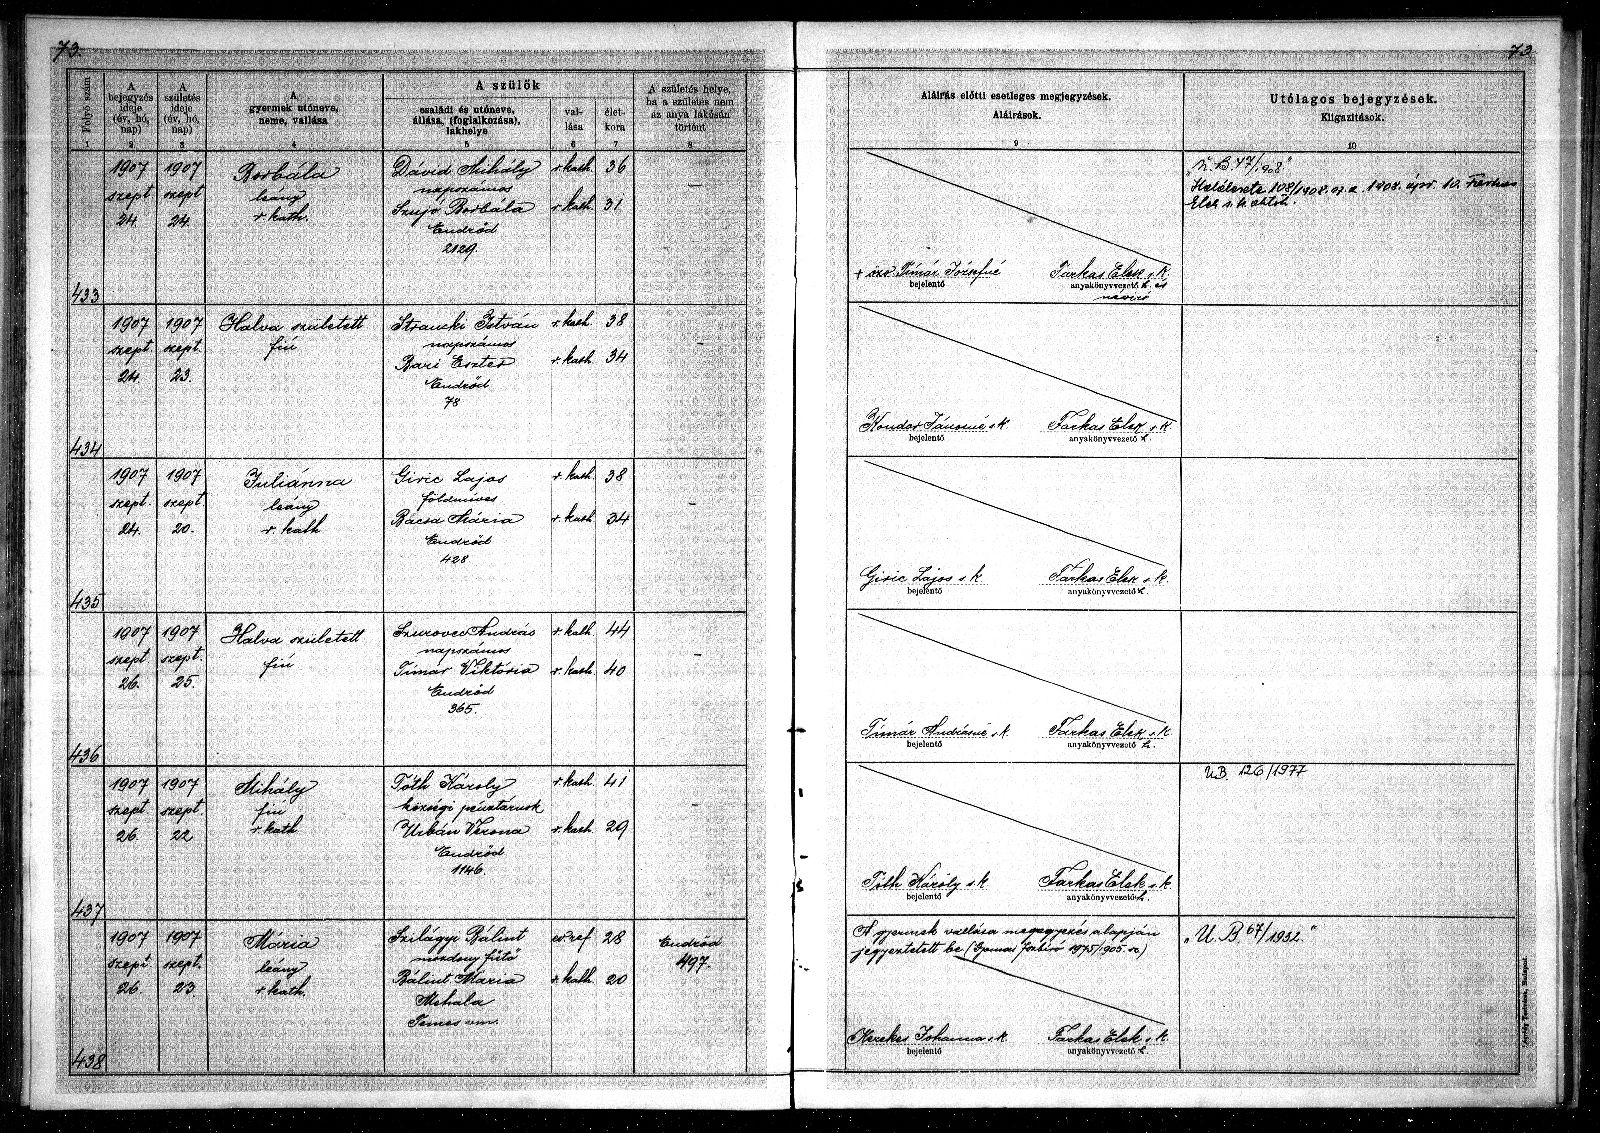 73.
73
Folyó szám
A bejegyzés ideje (év, hó, nap)
A születés ideje (év, hó, nap)
A gyermek utóneve, neme, vallása
A szülők
családi és utóneve, állása, (foglalkozása), lakhelye
val-lása
élet-kora
A születés helye, ha a születés nem az anya lakásán történt
1 2 3 4 5 6 7 8
Aláírás előtti esetleges megjegyzések.
Aláírások.
9
Utólagos bejegyzések.
Kiigazítások.
10
433
1907 szept 24.
1907 szept 24.
Borbála
leány
r. kath.
Dávid Mihály r. kath. 36
napszámos
Szujó Borbála r. kath. 31
Endrőd
2129.
—
+ özv. Tímár Józsefné
bejelentő
Farkas Elek s. k.
anyakönyvvezető h. és
névíró
47/1908
108/1908
1908. ápr. 10. Farkas
Elek s. k.
434
1907 szept. 24.
1907 szept. 23.
Halva született
fiú
Stranski István r. kath. 38
napszámos
Bari Eszter r. kath. 34
Endrőd
78
—
Kondor Jánosné s. k.
bejelentő
Farkas Elek s. k.
anyakönyvvezető h.
435
1907 szept. 24.
1907 szept 20.
Juliánna
leány
r. kath
Giric Lajos r. kath. 38
földműves
Bácsa Mária r. kath. 34
Endrőd
428
—
Giric Lajos s. k.
bejelentő
Farkas Elek s. k.
anyakönyvvezető h.
436
1907 szept 26.
1907 szept. 25.
Halva született
fiú
Szurovec András r. kath. 44
napszámos
Tímár Viktória r. kath. 40
Endrőd
365.
—
Tímár Andrásné s. k.
bejelentő
Farkas Elek s. k.
anyakönyvvezető h.
437
1907 szept 26.
1907 szept. 22
Mihály
fiú
r. kath
Tóth Károly r. kath. 41
községi pénztárnok
Urbán Verona r. kath. 29
Endrőd
1146.
—
Tóth Károly s. k.
bejelentő
Farkas Elek s. k.
anyakönyvvezető h.
U.B. 126/1977
438
1907 szept 26.
1907 szept. 23.
Mária
leány
r. kath.
Szilágyi Bálint ev. ref 28
mozdony fűtő
Bálint Mária r. kath. 20
Mehala
Temes vm.
Endrőd
497.
A gyermek vallása megegyezés alapján
jegyeztetett be (Gyomai 1975/905. sz)
Kerekes Johanna s. k.
bejelentő
Farkas Elek s. k.
anyakönyvvezető h.
„U. B. 67/1932"